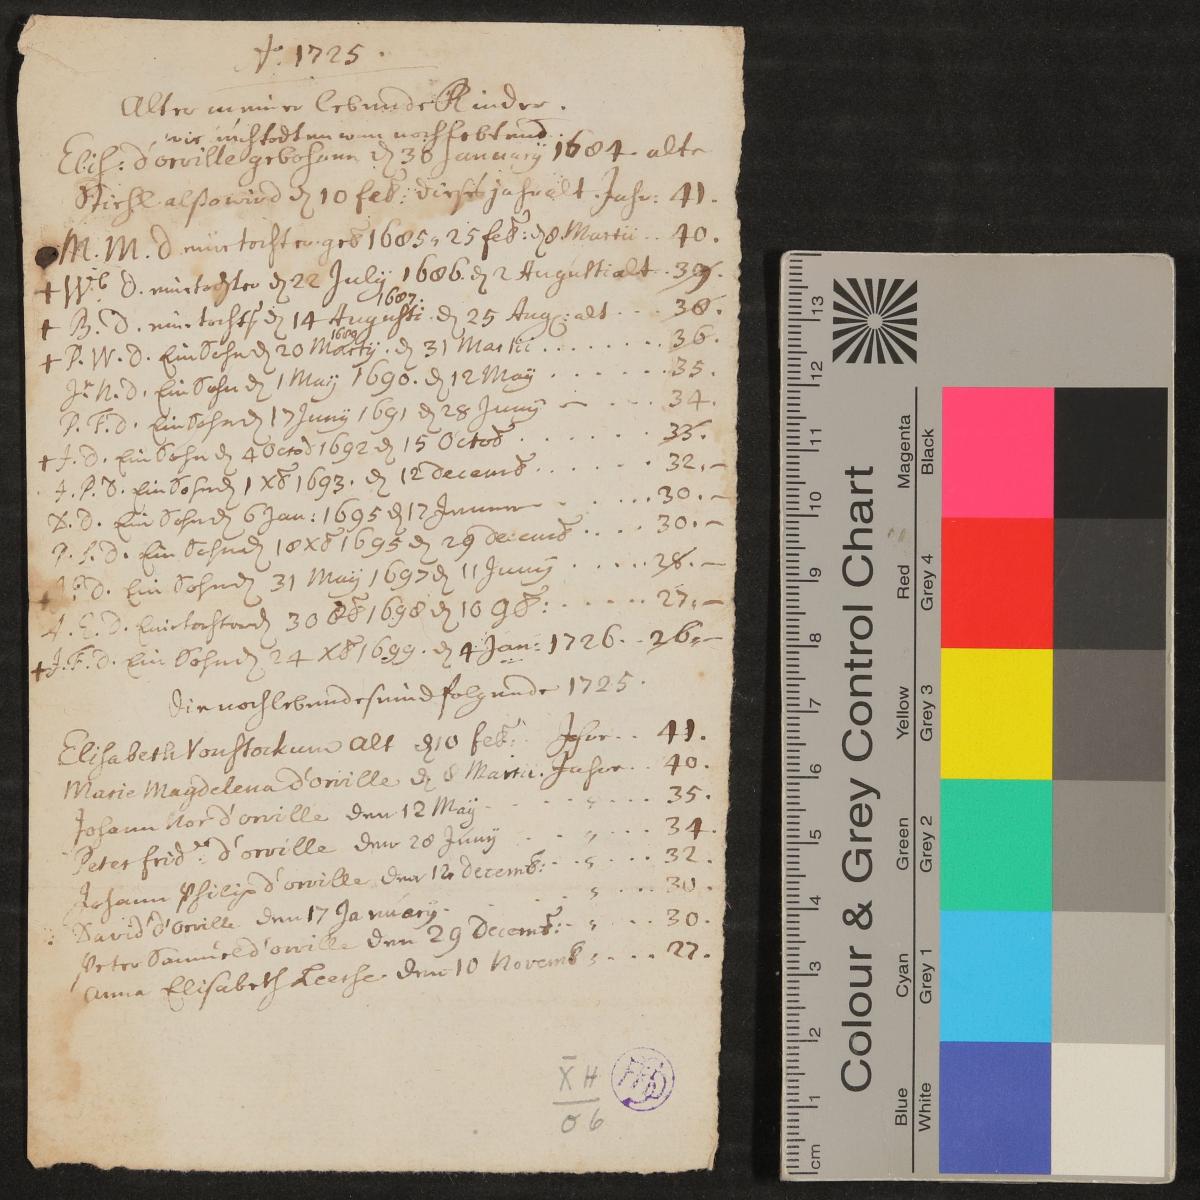 Ao. 1725.
Alter meiner lebende Kinder.
wie noch lebend
Elis: d'orville gebohren d 30 January 1684 alte
Stiehl also wird d 10 feb: dieses jahr alt. Jahr: 41.
M. M. D eine tochter geb 1685 25 feb: d 8 Martii .. 40.
+ W. D. eine tochter d 22 July 1686. d 2 Augusti alt. 39.
1687.
+ B. D. eine tochter d 14 Augusti d 25 Aug: alt ... 38.
1689
+ P. W. D. Ein Sohn d 20 Marty. d 31 Martii ....... 36.
Jr. N. D. Ein Sohn d 1 May 1690. d 12 May ...... 35.
P. F. D. Ein Sohn d 17 Juny 1691 d 28 Juny ... 34.
+ J. D. Ein Sohn d 4 Octob 1692 d 15 Octob ...... 33.
J. P. D. Ein Sohn d 1 Xb 1693. d 12 decemb ...... 32.
D. D. Ein Sohn d 6 Jan: 1695 d 17 Januar ..... 30.
P. S. D. Ein Sohn d 18 Xb 1695 d 29 decemb .... 30.
D. Ein Sohn d 31 May 1697 d 11 Juny ..... 28.
A. E. D. Eine tochter d 30 8b 1698 d 10 9b: ...... 27.
+ J. F. D. Ein Sohn d 24 Xb 1699. d 4 Jan: 1726. .. 26.
Die noch lebende seind folgende 1725.
Elisabeth Von Stockum alt d 10 feb: Jahr .. 41.
Marie Magdelena d'orville d 8 Martii. Jahre .. 40.
Johann Nor d'orville den 12 May ..... 35.
Peter frid: d'orville den 28 Juny ..... 34.
Johann Philip d'orville den 12 decemb: ..... 32.
David d'orville den 17 January. ..... 30.
Peter Samuel d'orville den 29 Decemb: ..... 30.
Anna Elisabeth Leerse den 10 Novemb .... 27.
X H
06
Colour & Grey Control Chart
Blue Cyan Green Yellow Red Magenta
White Grey 1 Grey 2 Grey 3 Grey 4 Black
cm 1 2 3 4 5 6 7 8 9 10 11 12 13